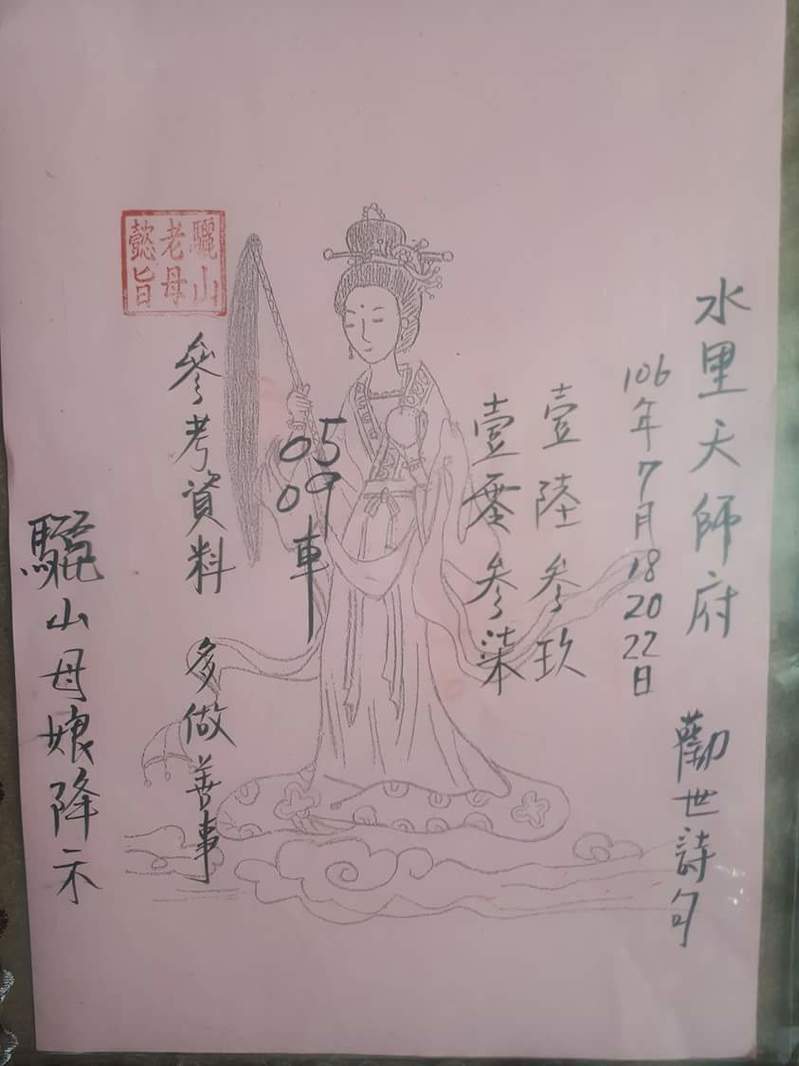 水里天師府 勸世詩句
106年7月18 20 22日
壹陸參玖
壹零參柒
05
09車
參考資料 多做善事
驪山母娘降示
驪山
老母
懿旨